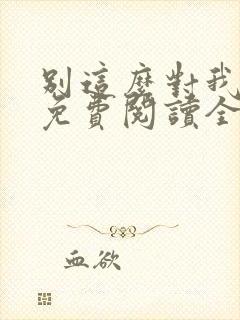 別這麼對我
免費閱讀全
血欲